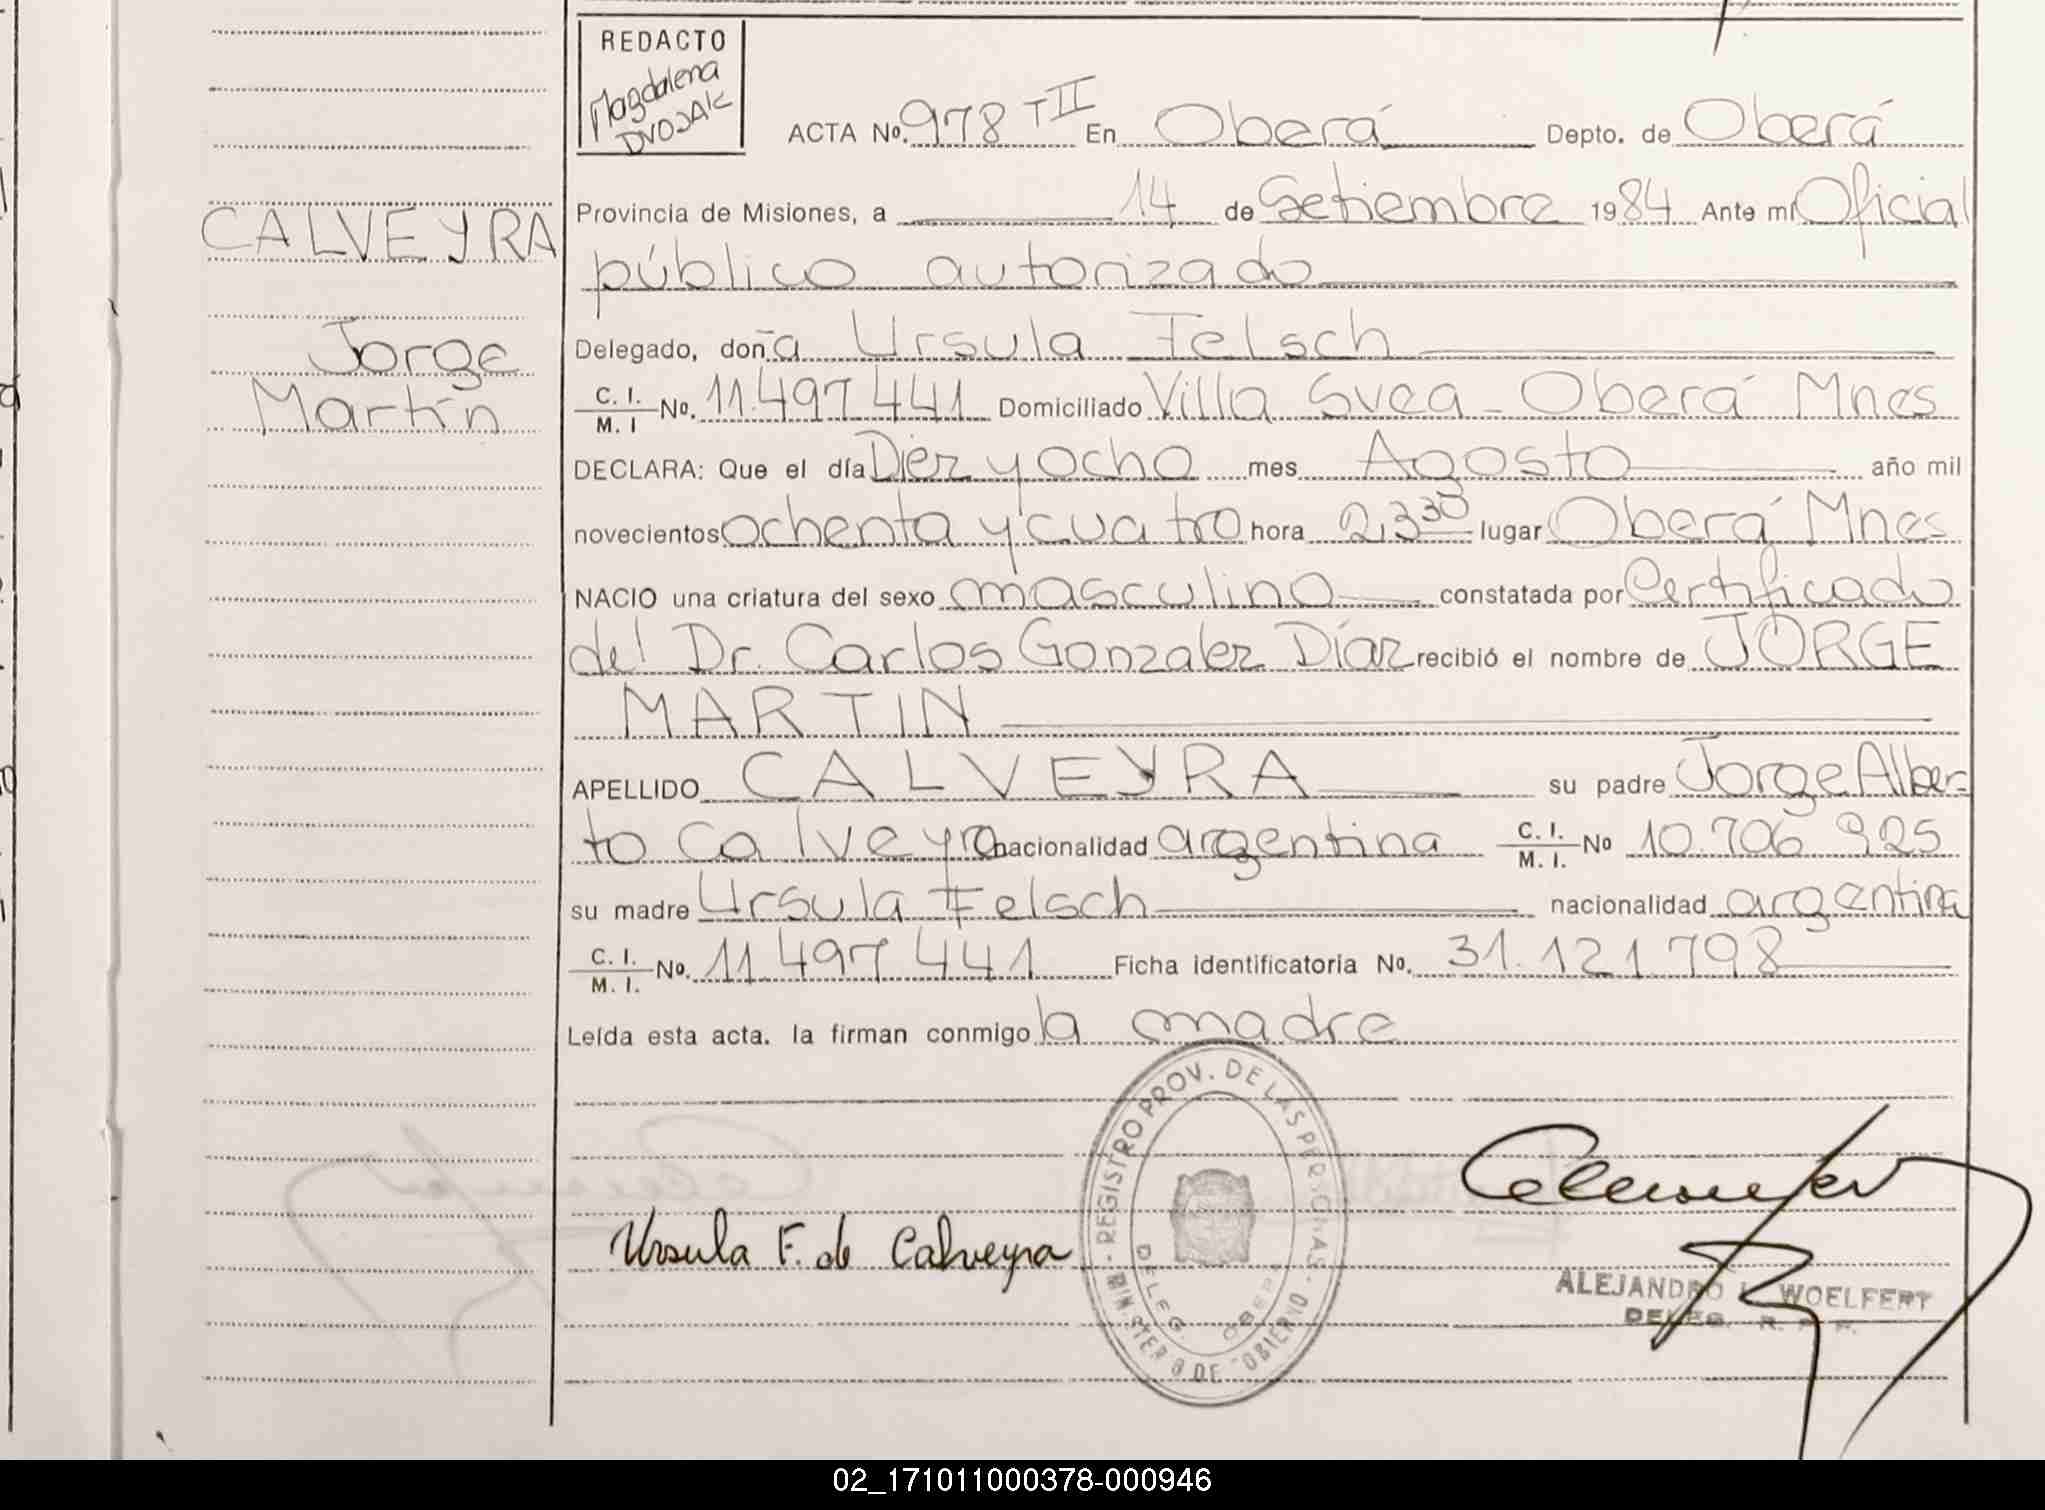 REDACTO
Magdalena
DVOJAK
ACTA No. 978 TII En Oberá Depto. de Oberá
CALVEYRA
Jorge
Martín
Provincia de Misiones, a 14 de Setiembre 1984 Ante mí Oficial
público autorizado
Delegado, doña Ursula Felsch
C. I. / M. I No. 11.497 441 Domiciliado Villa Svea - Oberá Mnes
DECLARA: Que el día Diez y ocho mes Agosto año mil
novecientos ochenta y cuatro hora 2,330 lugar Oberá Mnes
NACIO una criatura del sexo masculino constatada por Certificado
del Dr. Carlos Gonzalez Díaz recibió el nombre de JORGE
MARTIN
APELLIDO CALVEYRA su padre Jorge Alber-
to Calveyra nacionalidad argentina C. I. / M. I. No 10.706 925
su madre Ursula Felsch nacionalidad argentina
C. I. / M. I. No. 11 497 441 Ficha identificatoria No. 31.121 798
Leída esta acta. la firman conmigo la madre
REGISTRO PROV. DE LAS PERSONAS
MINISTERIO DE GOBIERNO
DELEG. OBERA
Ursula F. de Calveyra
ALEJANDRO L. WOELFERT
DELEG. R. P. P.
02_171011000378-000946